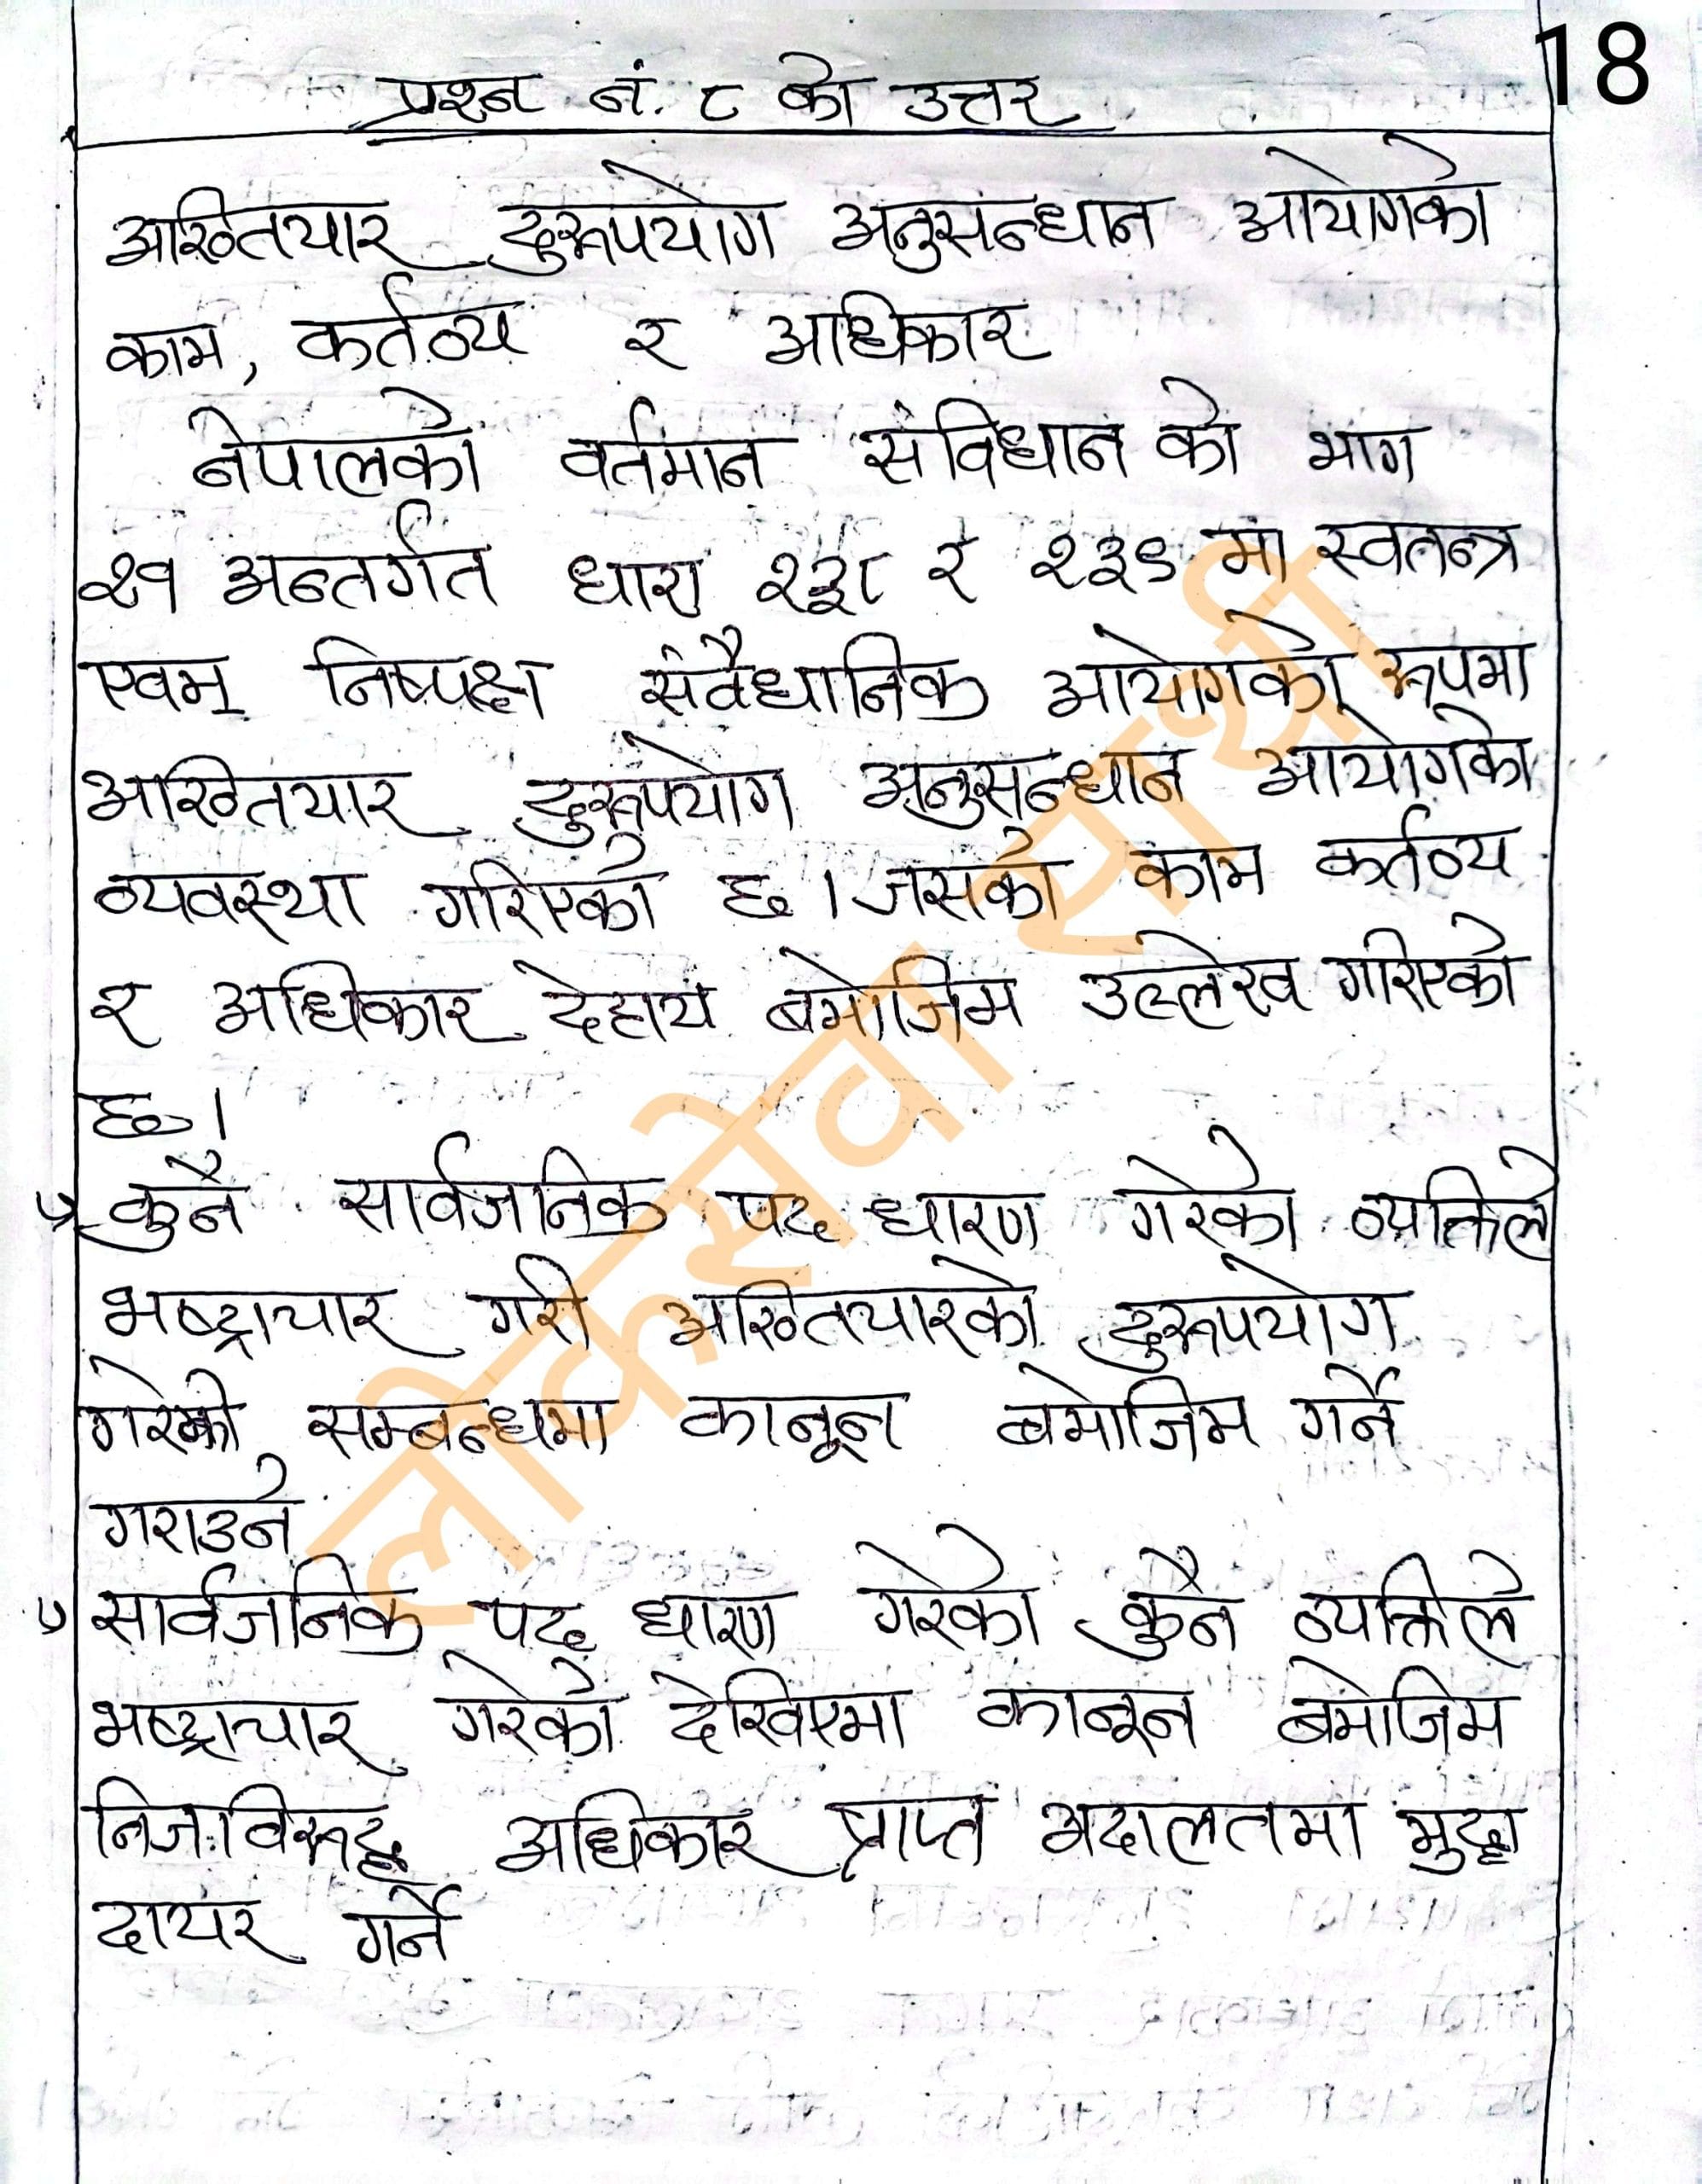 18
प्रश्न नं. ८ को उत्तर
अख्तियार दुरूपयोग अनुसन्धान आयोगको
काम, कर्तव्य र अधिकार
नेपालको वर्तमान संविधान को भाग
२१ अन्तर्गत धारा २३८ र २३९ मा स्वतन्त्र
एवम् निष्पक्ष संवैधानिक आयोगको रूपमा
अख्तियार दुरूपयोग अनुसन्धान आयोगको
व्यवस्था गरिएको छ । जसको काम कर्तव्य
र अधिकार देहाय बमोजिम उल्लेख गरिएको
छ।
कुनै सार्वजनिक पद धारण गरेको व्यक्तिले
भष्ट्राचार गरी अख्तियारको दुरूपयोग
गरेको सम्बन्धमा कानून बमोजिम गर्ने
गराउने
सार्वजनिक पद धारण गरेको कुनै व्यक्तिले
भष्ट्राचार गरेको देखिएमा कानून बमोजिम
निज विरूद्ध अधिकार प्राप्त अदालतमा मुद्दा
दायर गर्ने
लोकसेवा सारथी